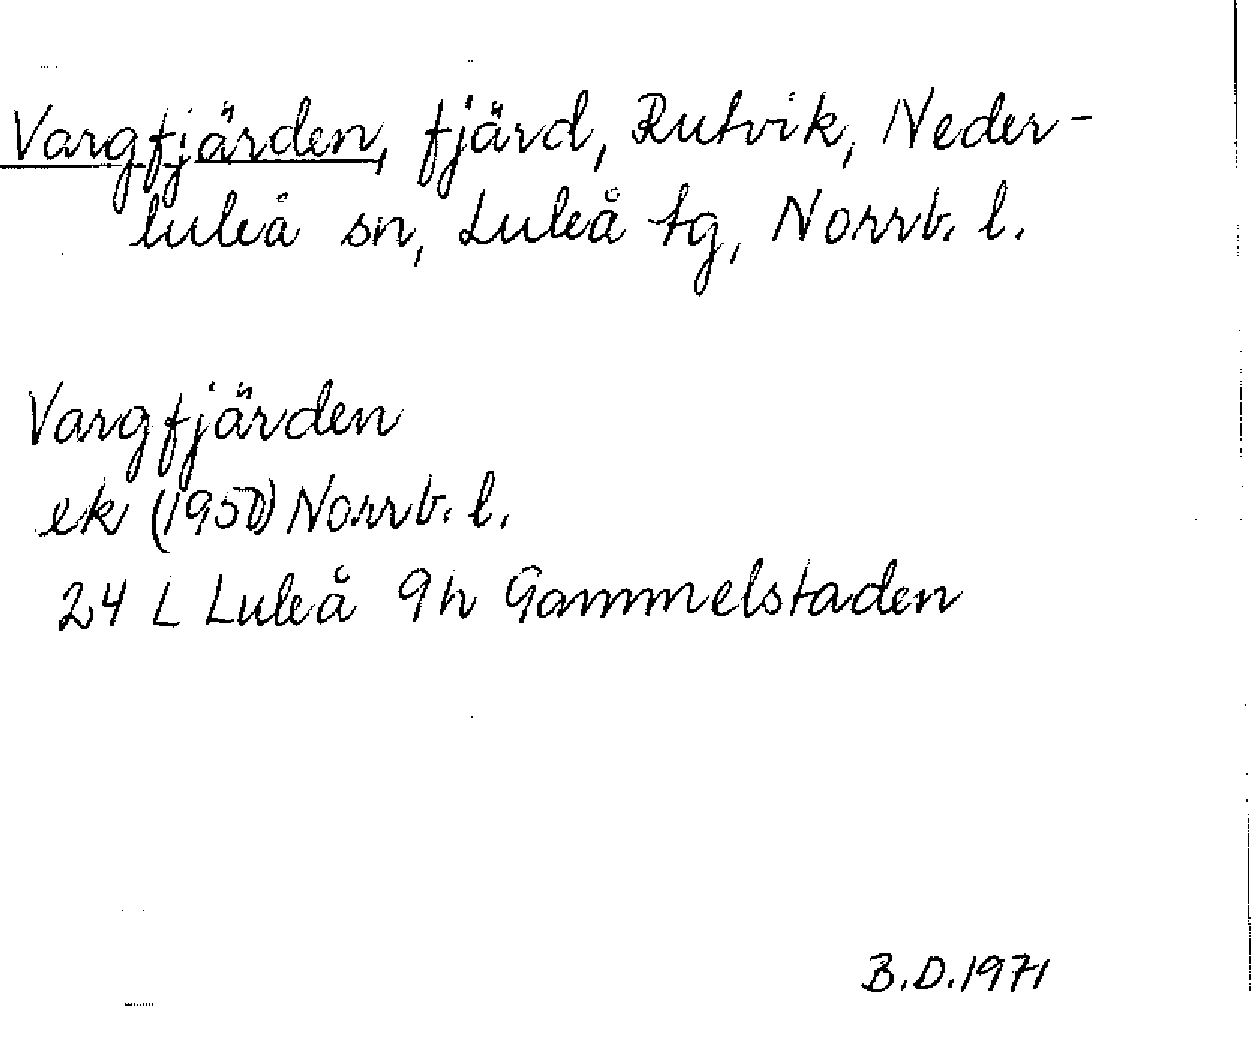 Vargfjärden, fjärd, Rutvik, Neder-
luleå sn, Luleå tg, Norrb. l.
Vargfjärden
ek (1950) Norrb. l.
24 L Luleå 9h Gammelstaden
B.D.1971